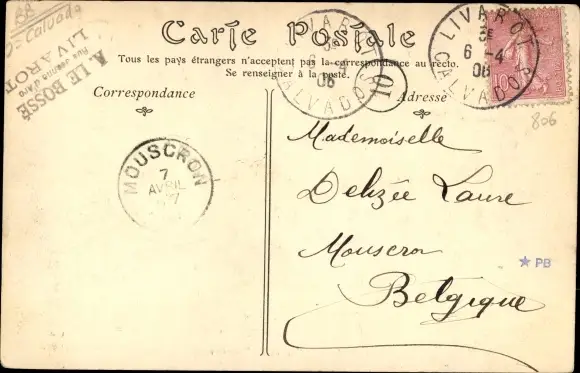 Carte Postale
Tous les pays étrangers n'acceptent pas la correspondance au recto.
Se renseigner à la poste.
Correspondance
Adresse
A. LE BOSSÉ
Rue Jeanne d'Arc
LIVAROT
Calvados
LIVAROT
6 -4
06
CALVADOS
LIVAROT
06
CALVADOS
10
10
806
MOUSCRON
7
AVRIL
Mademoiselle
Delizée Laure
Mouscron
Belgique
PB